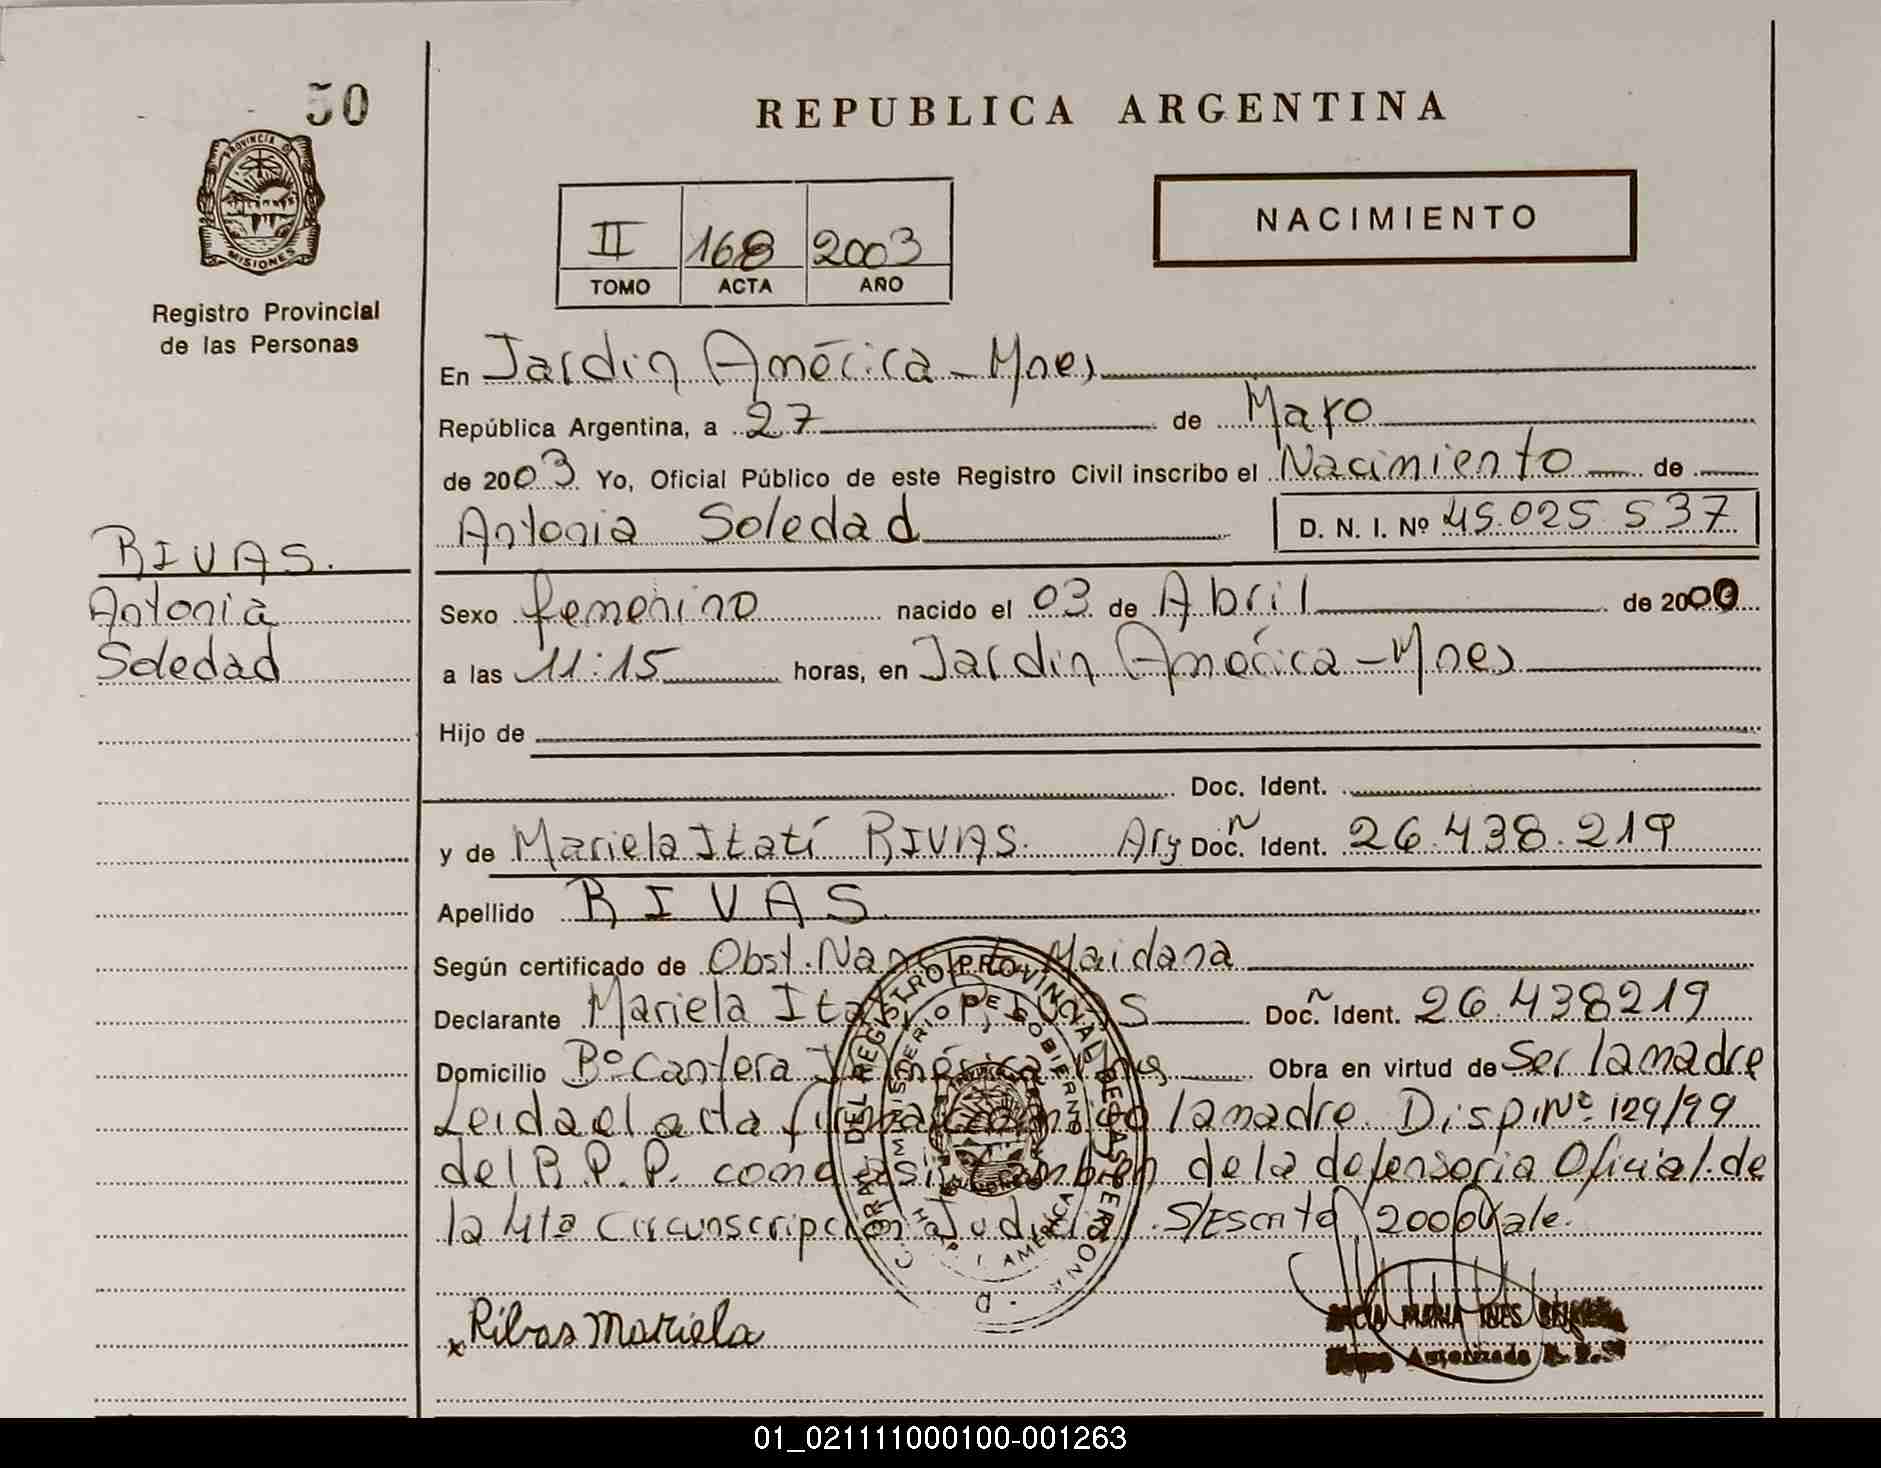 50
PROVINCIA DE
MISIONES
Registro Provincial
de las Personas
REPUBLICA ARGENTINA
NACIMIENTO
II 168 2003
TOMO ACTA AÑO
En Jardin América - Mnes
República Argentina, a 27 de Mayo
de 2003 Yo, Oficial Público de este Registro Civil inscribo el Nacimiento de
Antonia Soledad D. N. I. Nº 45.025.537
RIVAS.
Antonia
Soledad
Sexo femenino nacido el 03 de Abril de 2000
a las 11:15 horas, en Jardin América - Mnes
Hijo de
Doc. Ident.
y de Mariela Itatí RIVAS. Arg Doc. Ident. 26.438.219
Apellido RIVAS
Según certificado de Obst. Maidana
Declarante Mariela Doc. Ident. 26.438219
Domicilio Bº Cantera Obra en virtud de Ser la madre
Leida el acta la madre. Disp. Nº 129/99
del R.P.P. como asi tambien de la defensoria Oficial de
la 4ta Circunscripción Judicial. S/Escrito 2000 Vale.
DEL REGISTRO PROVINCIAL DE LAS PERSONAS
MINISTERIO DE GOBIERNO
AMERICA
x Ribas Mariela
MARIA INES
Autorizada
01_021111000100-001263